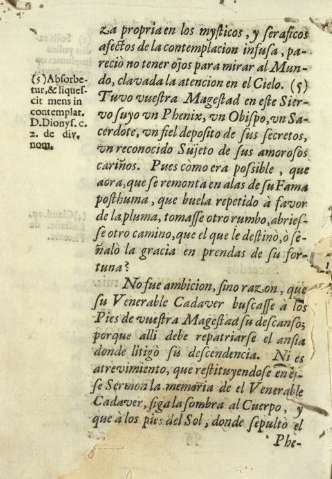 za propria en los mysticos, y seraficos
afectos de la contemplacion infusa, pa-
reciò no tener ojos para mirar al Mun-
do, clavada la atencion en el Cielo. (5)
Tuvo vuestra Magestad en este Sier-
vo suyo vn Phenix, vn Obispo, vn Sa-
cerdote, vn fiel deposito de sus secretos,
vn reconocido Sujeto de sus amorosos
cariños. Pues como era possible, que
aora, que se remonta en alas de su Fama
posthuma, que buela repetido à favor
de la pluma, tomasse otro rumbo, abries-
se otro camino, que el que le destinò, ò se-
ñalò la gracia en prendas de su for-
tuna?
No fue ambicion, sino razon, que
su Venerable Cadaver buscasse à los
Pies de vuestra Magestad su descanso;
porque alli debe repatriarse el ansia
donde litigò su descendencia. Ni es
atrevimiento, que restituyendose en es-
se Sermon la memoria de el Venerable
Cadaver, siga la sombra al Cuerpo, y
que à los pies del Sol, donde sepultò el
Phe-
(5) Absorbe-
tur, & liques-
cit mens in
contemplat.
D. Dionys. c.
2. de div.
nom.